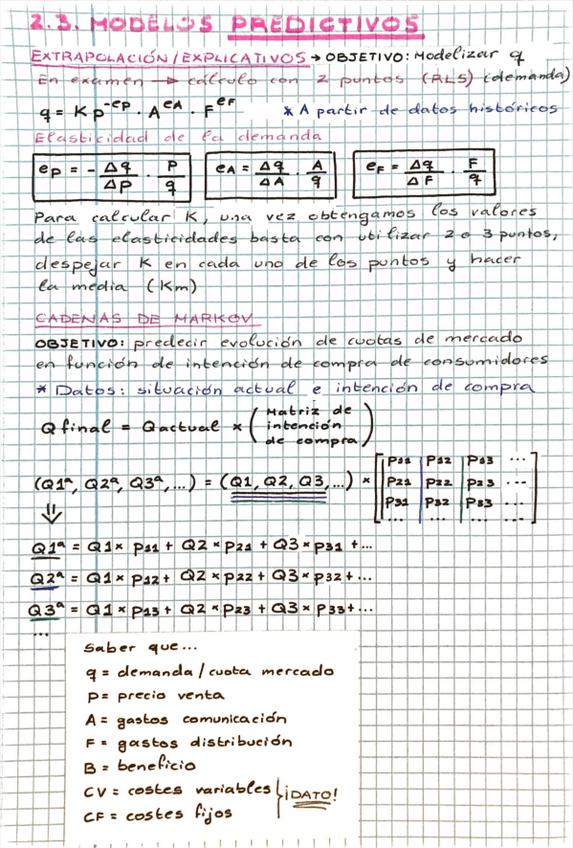 2.3. MODELOS PREDICTIVOS
EXTRAPOLACIÓN/EXPLICATIVOS → OBJETIVO: Modelizar q
En examen → cálculo con 2 puntos (RLS) (demanda)
q = K p^-ep · A^eA · F^eF * A partir de datos históricos
Elasticidad de la demanda
ep = - Δq/Δp · p/q eA = Δq/ΔA · A/q eF = Δq/ΔF · F/q
Para calcular K, una vez obtengamos los valores
de las elasticidades basta con utilizar 2 o 3 puntos,
despejar K en cada uno de los puntos y hacer
la media (Km)
CADENAS DE MARKOV
OBJETIVO: predecir evolución de cuotas de mercado
en función de intención de compra de consumidores
* Datos: situación actual e intención de compra
Q final = Q actual × (Matriz de
intención
de compra)
(Q1ª, Q2ª, Q3ª, ...) = (Q1, Q2, Q3, ...) × [P11 P12 P13 ...
P21 P22 P23 ...
P31 P32 P33 ...
... ... ... ...]
⇓
Q1ª = Q1 × p11 + Q2 × p21 + Q3 × p31 + ...
Q2ª = Q1 × p12 + Q2 × p22 + Q3 × p32 + ...
Q3ª = Q1 × p13 + Q2 × p23 + Q3 × p33 + ...
...
Saber que...
q = demanda/cuota mercado
p = precio venta
A = gastos comunicación
F = gastos distribución
B = beneficio
CV = costes variables } ¡DATO!
CF = costes fijos